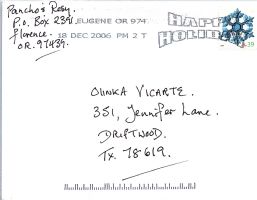 Pancho's Rosy.
P.O. Box 2391
EUGENE OR 974
Florence.
18 DEC 2006 PM 2 T
OR. 97439.
HAPPY
HOLIDAY
39
OLINKA VICARTE.
351, Jennifer Lane.
DRIFTWOOD.
TX. 78619.